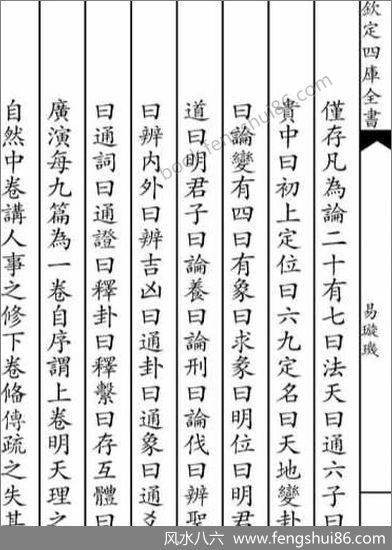 欽定四庫全書
易璇璣
僅存凡為論二十有七曰法天曰通六子曰
貴中曰初上定位曰六九定名曰天地變卦
曰論變有四曰有象曰求象曰明位曰明君
道曰明君子曰論養曰論刑曰論伐曰辨聖
曰辨内外曰辨吉凶曰通卦曰通象曰通爻
曰通詞曰通證曰釋卦曰釋繫曰存互體曰
廣演每九篇為一卷自序謂上卷明天理之
自然中卷講人事之修下卷偹傳疏之失其
book.fengshui86.com
风水八六 – www.fengshui86.com